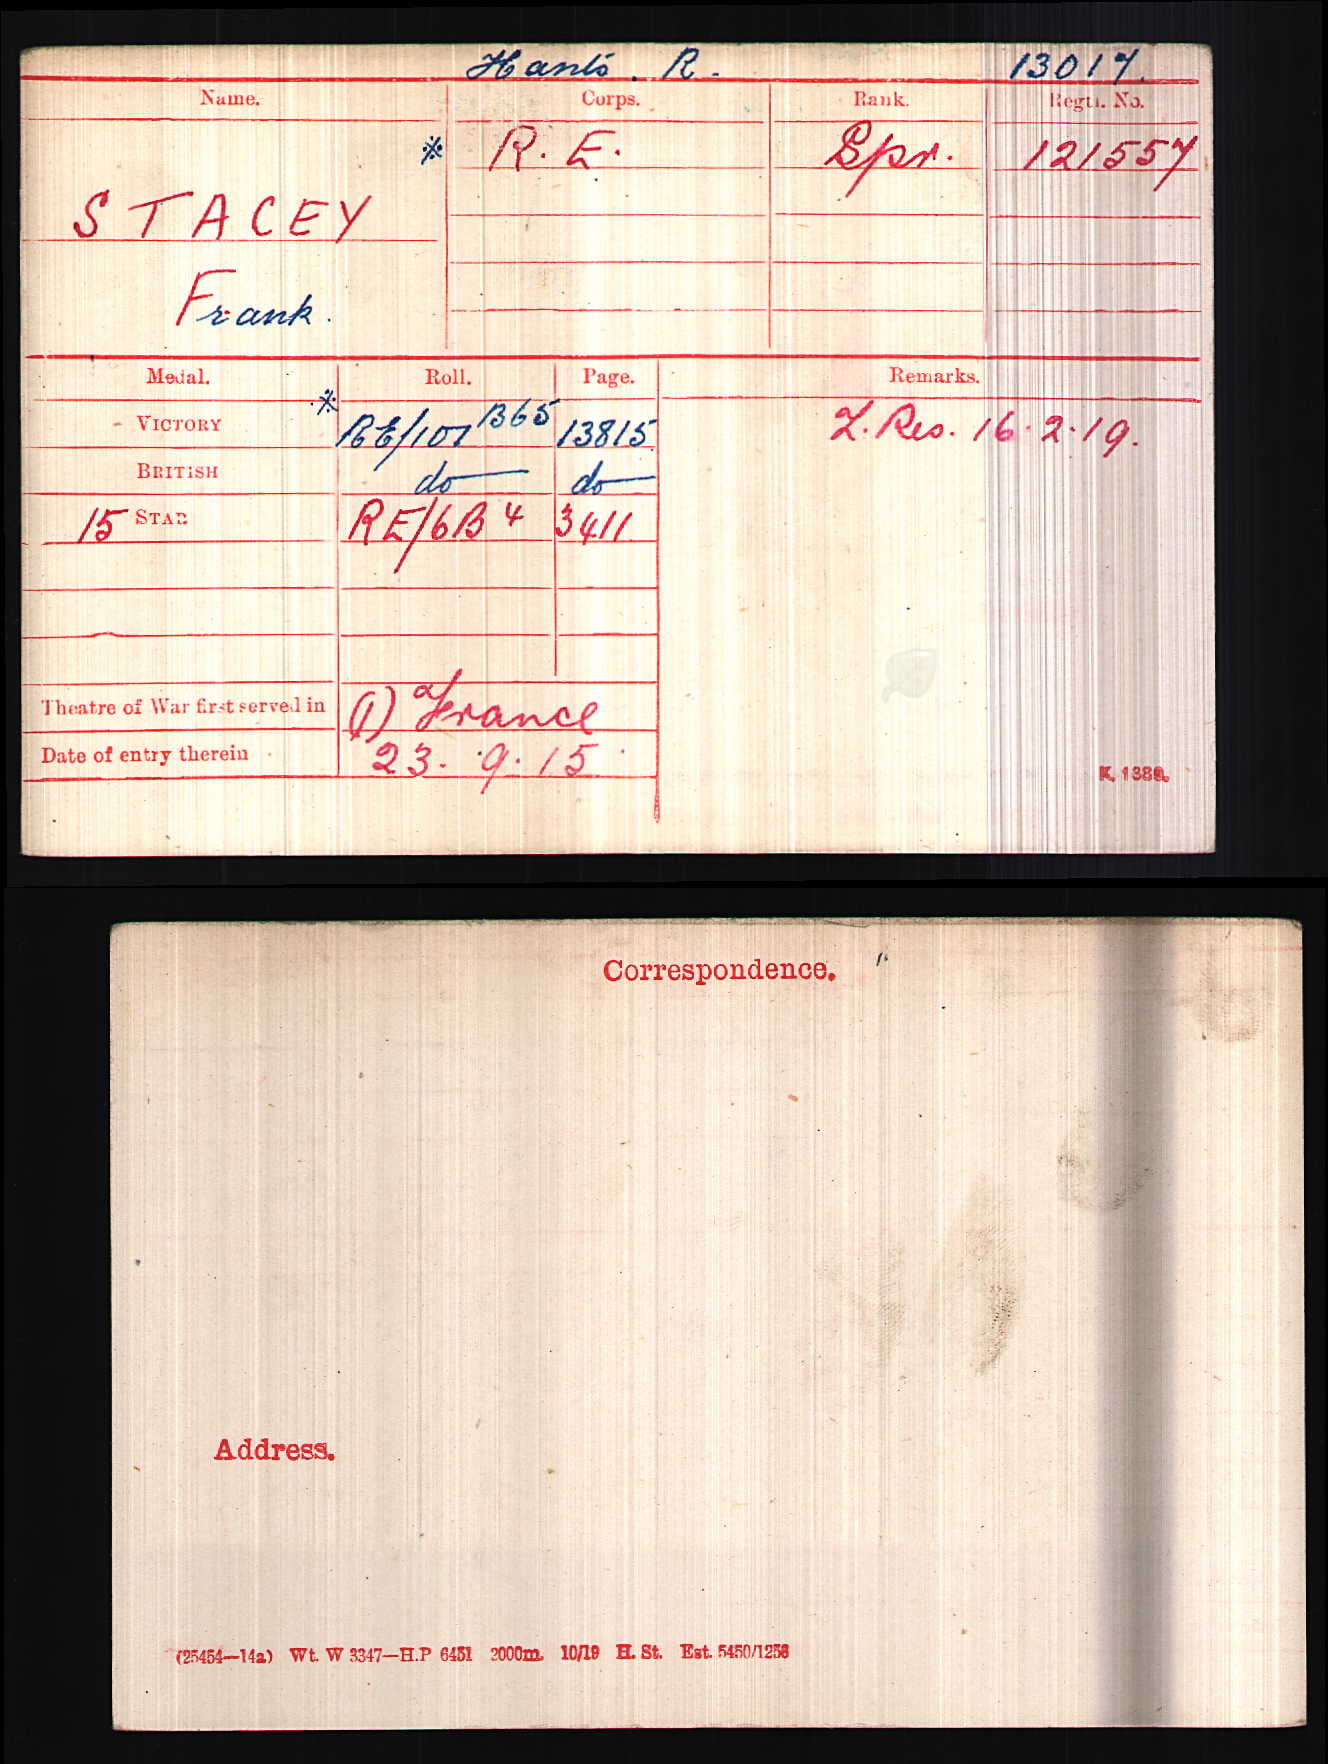 Hants. R. 13017.
Name. Corps. Rank. Regtl. No.
※ R. E. Spr. 121557
STACEY
Frank.
Medal. Roll. Page. Remarks.
VICTORY ※ RE/101 B65 13815 Z. Res. 16.2.19.
BRITISH do do
15 STAR RE/6B4 3411
Theatre of War first served in (1) France
Date of entry therein 23. 9. 15
K. 1380.
Correspondence.
Address.
(25454—14a) Wt. W 3347—H.P 6451 2000m. 10/19 H. St. Est. 5450/1256